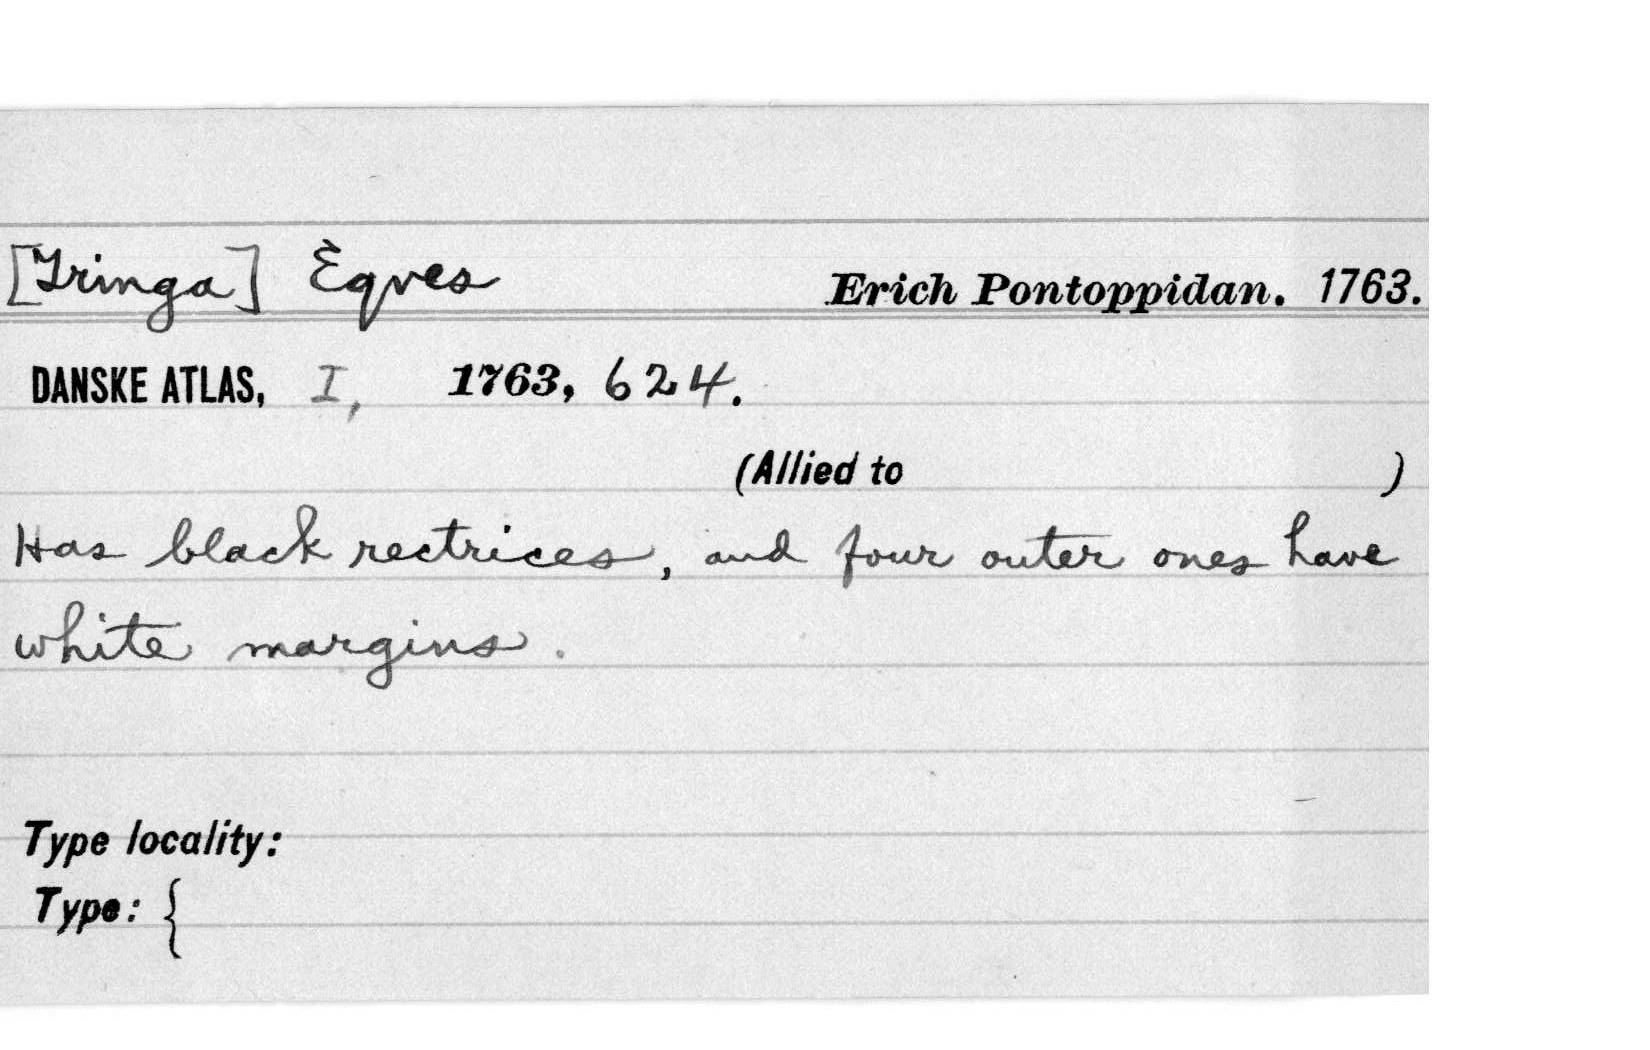 [Tringa] Eqves Erich Pontoppidan. 1763.
DANSKE ATLAS, I, 1763, 624.
(Allied to )
Has black rectrices, and four outer ones have
white margins.
Type locality:
Type: {